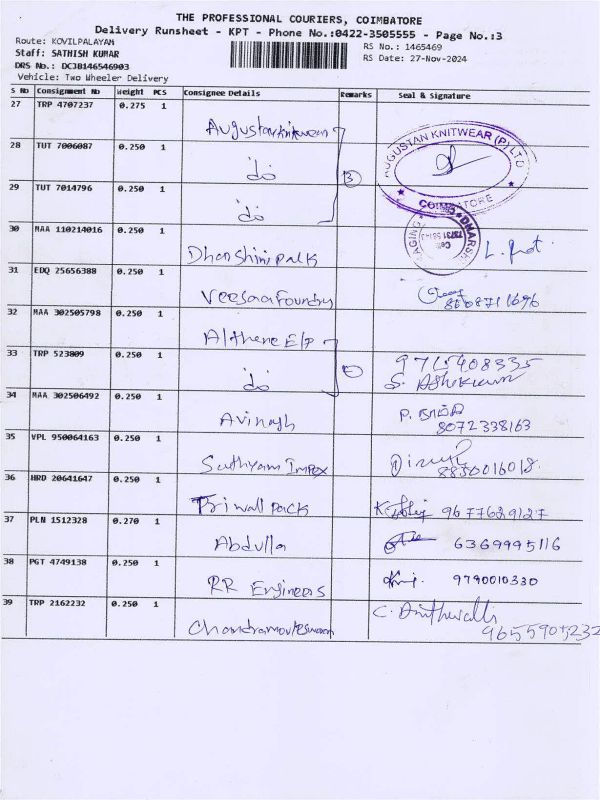 THE PROFESSIONAL COURIERS, COIMBATORE
Delivery Runsheet - KPT - Phone No.:0422-3505555 - Page No.:3
Route: KOVILPALAYAM
RS No.: 1465469
Staff: SATHISH KUMAR
RS Date: 27-Nov-2024
DRS No.: DCJB146546903
Vehicle: Two Wheeler Delivery
S No Consignment No Weight PCS Consignee Details Remarks Seal & Signature
27 TRP 4707237 0.275 1 Augustan Knitwear
28 TUT 7006087 0.250 1 do 3
AUGUSTAN KNITWEAR (P) LTD
COIMBATORE
29 TUT 7014796 0.250 1 do
30 MAA 110214016 0.250 1 Dharshini pack
31 EDQ 25656388 0.250 1 Veesaa Foundry 8508711696
32 MAA 302505798 0.250 1 Althene E/P
33 TRP 523809 0.250 1 do 9715408335
S. Ashikkum
34 MAA 302506492 0.250 1 Avinash P.
8072338163
35 VPL 950064163 0.250 1 Sathyam Impex
8830016018.
36 HRD 20641647 0.250 1 Triwall pack 9677629127
37 PLN 1512328 0.270 1 Abdulla 6369995116
38 PGT 4749138 0.250 1 RR Engineers 9790010330
39 TRP 2162232 0.250 1 Chandramouleswaran C.
9655905232